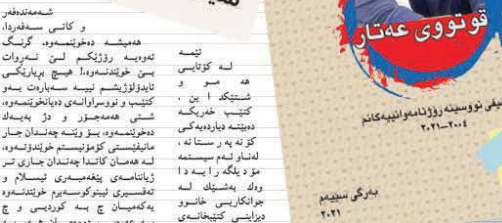 شەمەندەفەر
و کاتی سەفەردا،
هەمیشە دەخوێنمەوە. گرنگ
ئەوەیە رۆژێکم لێ نەروات
بێ خوێندنەوە.! هیچ بریارێکی
ئایدۆلۆژیشم نییە سەبارەت بەو
کتێب و نووسراوانەی دەیانخوێنمەوە،
شتی هەمەجۆر و دژ بەیەک
دەخوێنمەوە، بۆ وێنە چەندان جار
مانیفێستی کۆمۆنیستم خوێندۆتەوە،
لە هەمان کاتدا چەندان جاری تر
ژیاننامەی پێغەمبەری ئیسلام و
تەفسیری ئیبنوکەسیرم خوێندنەوە
یەکەمیان چ بە کوردیی و چ
ئێمە
لە کۆتایی
هەموو
شتێکداین،
کتێب خەریکە
دەبێتە دیاردەیەکی
کۆنەپەرستانە،
لەناو ئەم سیستمە
مۆدێلگەرایەدا
وەک بەشێک لە
جوانکاریی خانوو
دیزاینی کتێبخانەی
قوتووی عەتار
نووسینە رۆژنامەوانییەکانم
٢٠٠٤–٢٠٢١
بەرگی سێیەم
٢٠٢١